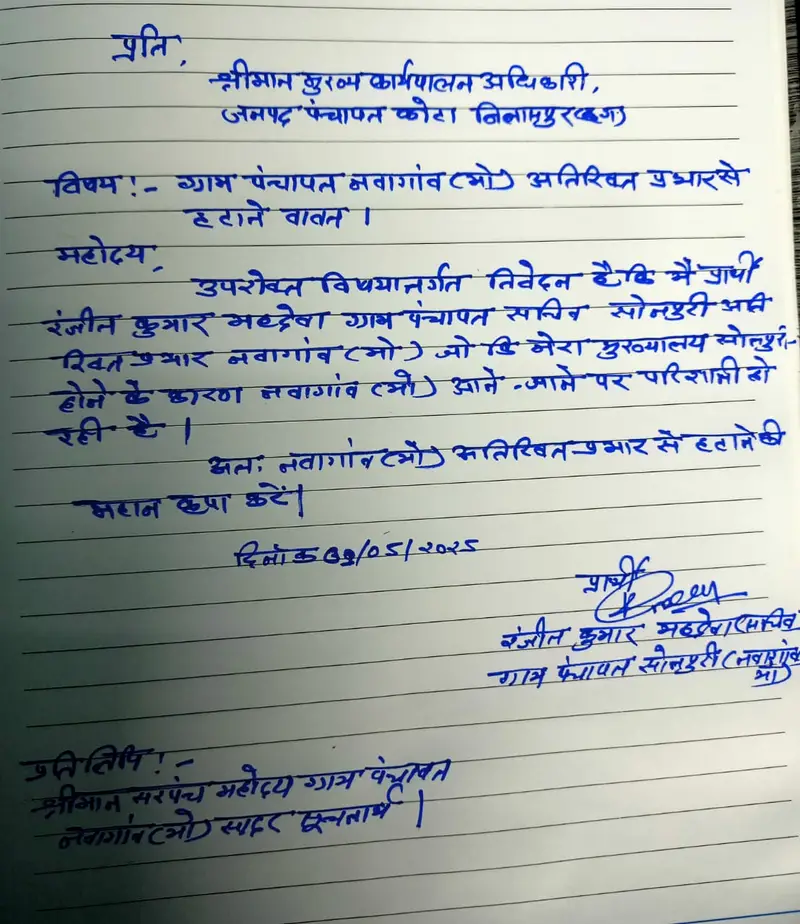 प्रति,
श्रीमान मुख्य कार्यपालन अधिकारी,
जनपद पंचायत कोटा बिलासपुर (छ.ग)
विषय !- ग्राम पंचायत नवागांव (मो) अतिरिक्त प्रभार से
हटाने बावत ।
महोदय,
उपरोक्त विषयान्तर्गत निवेदन है कि मै प्रार्थी
रंजीत कुमार महदेवा ग्राम पंचायत सचिव सोनपुरी अति
रिक्त प्रभार नवागांव (मो) जो कि मेरा मुख्यालय सोनपुरी-
होने के कारण नवागांव (मो) आने-जाने पर परिशानी हो
रही है ।
अतः नवागांव (मो) अतिरिक्त प्रभार से हटाने की
महान कृपा करें।
दिनांक /05/2025
प्रार्थी
रंजीत कुमार महदेवा (सचिव
ग्राम पंचायत सोनपुरी (नवागांव
मो)
प्रतिलिपि !-
श्रीमान सरपंच महोदय ग्राम पंचायत
नवागांव (मो) सादर सूचनार्थ ।